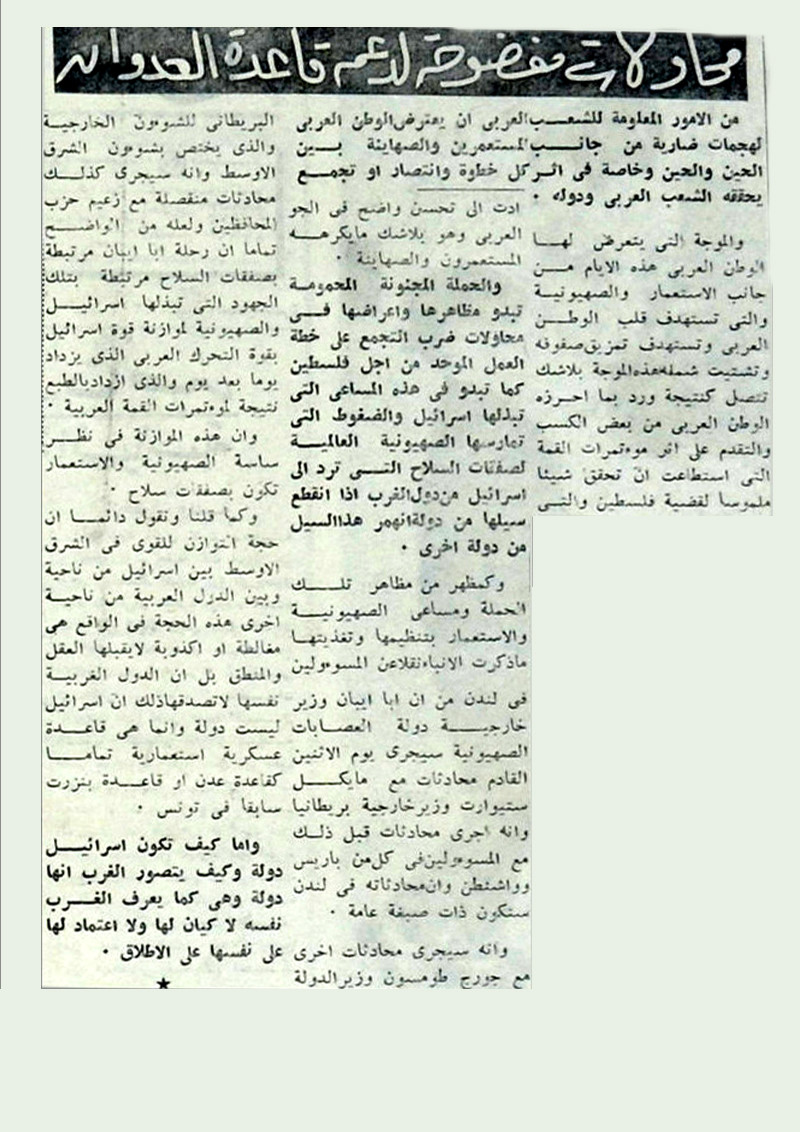 محاولات مفضوحة لدعم قاعدة العدوان
من الامور المعلومة للشعـــب العربى ان يعترض الوطن العربى
لهجمات ضارية من جانـــب المستعمرين والصهاينة بـــين
الحين والحين وخاصة فى اثر كل خطوة وانتصار او تجمع
يحققه الشعب العربى ودوله ٠
والموجة التى يتعرض لهــا
الوطن العربى هذه الايام مــن
جانب الاستعمار والصهيونيــة
والتى تستهدف قلب الوطــن
العربى وتستهدف تمزيق صفوفه
وتشتيت شمله هذه الموجة بلاشك
تتصل كنتيجة ورد بما احــرزه
الوطن العربى من بعض الكسب
والتقدم على اثر موءتمرات القمة
التى استطاعت ان تحقق شيئا
ملموسا لقضية فلسطين والتــى
ادت الى تحسن واضح فى الجو
العربى وهو بلاشك مايكرهــه
المستعمرون والصهاينة ٠
والحملة المجنونة المحمومــة
تبدو مظاهرها واعراضها فــى
محاولات ضرب التجمع على خطة
العمل الموحد من اجل فلسطين
كما تبدو فى هذه المساعى التى
تبذلها اسرائيل والضغوط التى
تمارسها الصهيونية العالميــة
لصفقات السلاح التــى ترد الى
اسرائيل من دول الغرب اذا انقطع
سيلها من دولة انهمر هذا السيل
من دولة اخرى ٠
وكمظهر من مظاهر تلــــك
الحملة ومساعى الصهيونيــــة
والاستعمار بتنظيمها وتغذيتهــا
ماذكرت الانباء نقلا عن المسوءولين
فى لندن من ان ابا ايبان وزير
خارجيــــة دولة العصــابات
الصهيونية سيجرى يوم الاثنين
القادم محادثات مع مايكـــل
ستيوارت وزير خارجية بريطانيا
وانه اجرى محادثات قبل ذلــك
مع المسوءولين فى كل من باريس
وواشنطن وان محادثاته فى لندن
ستكون ذات صبغة عامة ٠
وانه سيجرى محادثات اخرى
مع جورج طومسون وزير الدولة
البريطانى للشوءون الخارجيــة
والذى يختص بشوءون الشرق
الاوسط وانه سيجرى كذلــــك
محادثات منفصلة مع زعيم حزب
المحافظين ولعله من الواضــح
تماما ان رحلة ابا ايبان مرتبطة
بصفقات السلاح مرتبطة بتلك
الجهود التى تبذلها اسرائيــل
والصهيونية لموازنة قوة اسرائيل
بقوة التحرك العربى الذى يزداد
يوما بعد يوم والذى ازداد بالطبع
نتيجة لموءتمرات القمة العربية ٠
وان هذه الموازنة فى نظــر
ساسة الصهيونية والاستعمار
تكون بصفقات سلاح ٠
وكما قلنا ونقول دائمــا ان
حجة التوازن للقوى فى الشرق
الاوسط بين اسرائيل من ناحية
وبين الدول العربية من ناحيــة
اخرى هذه الحجة فى الواقع هى
مغالطة او اكذوبة لايقبلها العقل
والمنطق بل ان الدول الغربيــة
نفسها لاتصدقها ذلك ان اسرائيل
ليست دولة وانما هى قاعــدة
عسكرية استعمارية تمامــا
كقاعدة عدن او قاعــدة بنزرت
سابقا فى تونس ٠
واما كيف تكون اسرائيــل
دولة وكيف يتصور الغرب انها
دولة وهى كما يعرف الغــرب
نفسه لا كيان لها ولا اعتماد لها
على نفسها على الاطلاق ٠
★